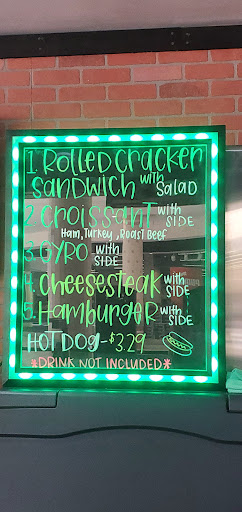 1. Rolled Cracker
Sandwich with Salad
2. Croissant with SIDE
Ham, Turkey, Roast Beef
3. GYRO with SIDE
4. Cheesesteak with SIDE
5. Hamburger with SIDE
HOT DOG - $3.29
*DRINK NOT INCLUDED*